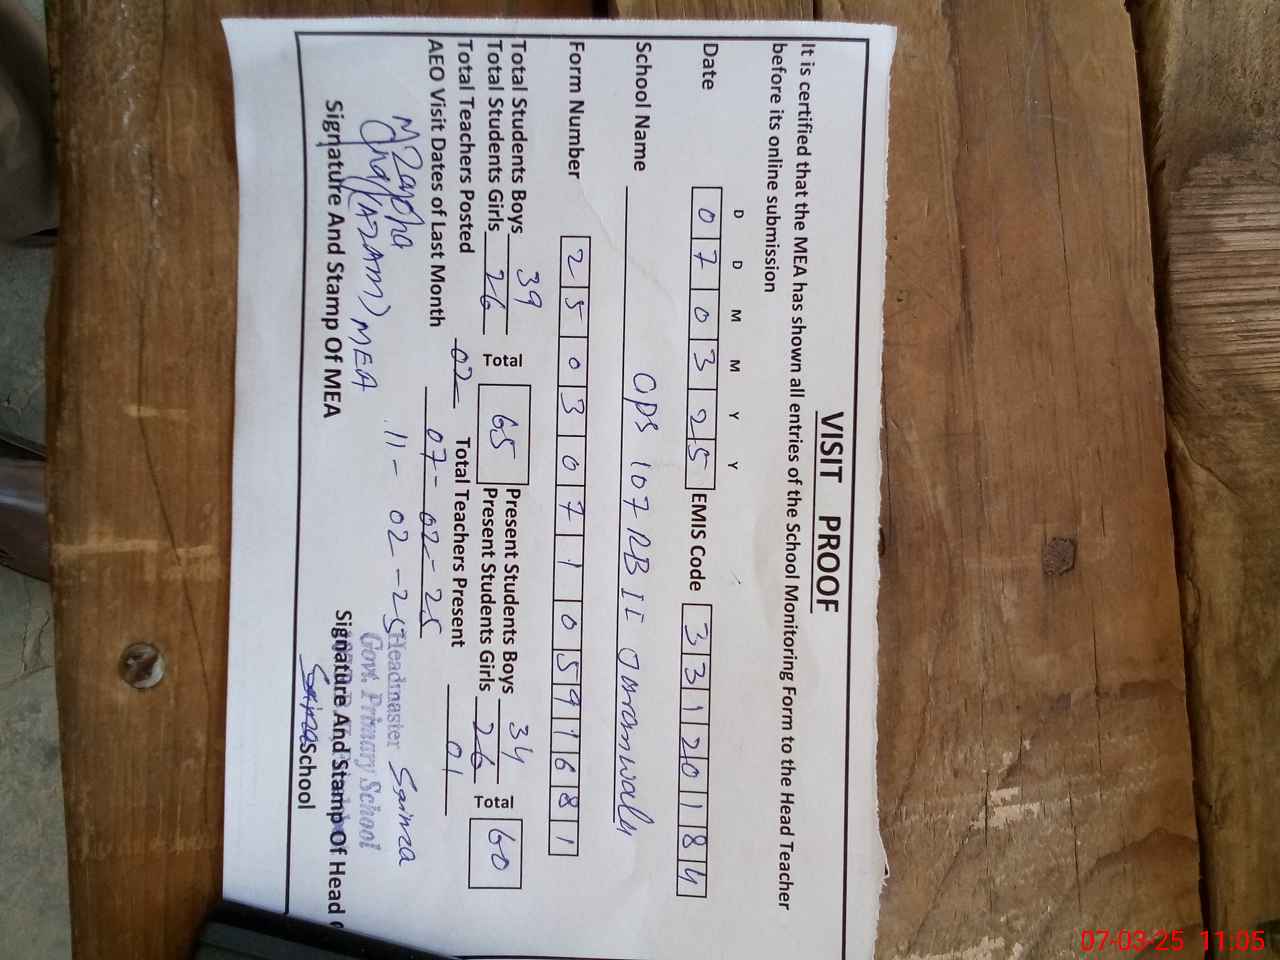 VISIT PROOF
It is certified that the MEA has shown all entries of the School Monitoring Form to the Head Teacher
before its online submission
D D M M Y Y
Date 0 7 0 3 2 5 EMIS Code 3 3 1 2 0 1 8 4
School Name GPS 107 RB II
Form Number 2 5 0 3 0 7 1 1 0 5 9 1 6 8 1
Total Students Boys 39 Total 65 Present Students Boys 34 Total 60
Total Students Girls 26 Present Students Girls 26
Total Teachers Posted 02 Total Teachers Present 01
AEO Visit Dates of Last Month 07-02-25
11-02-25
(AZAM) MEA
Headmaster
Govt. Primary School
Signature And Stamp Of MEA
Signature And Stamp Of Head
School
07-03-25 11:05